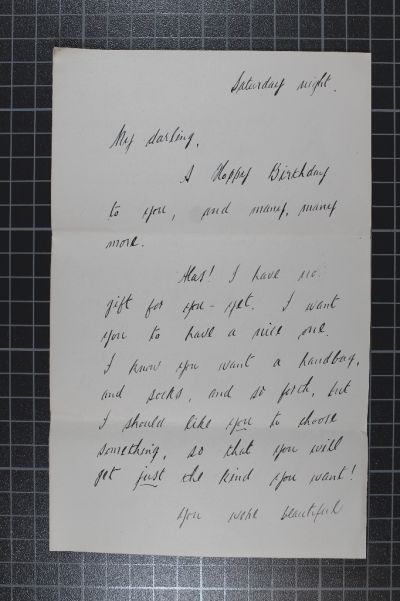 Saturday night.
My darling,
A Happy Birthday
to you, and many, many
more.
Alas! I have no
gift for you - yet. I want
you to have a nice one.
I know you want a handbag,
and socks, and so forth, but
I should like you to choose
something, so that you will
get just the kind you want!
You were beautiful